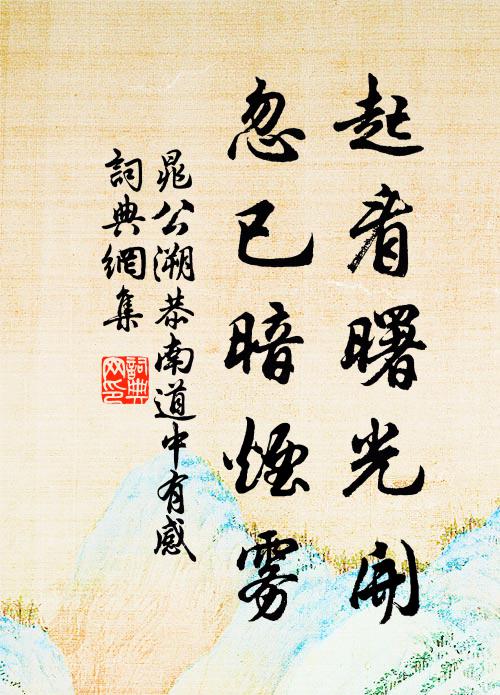 起看曙光開
忽已暗煙雾
晁公溯恭南道中有感
詞典網集
詞典
网印